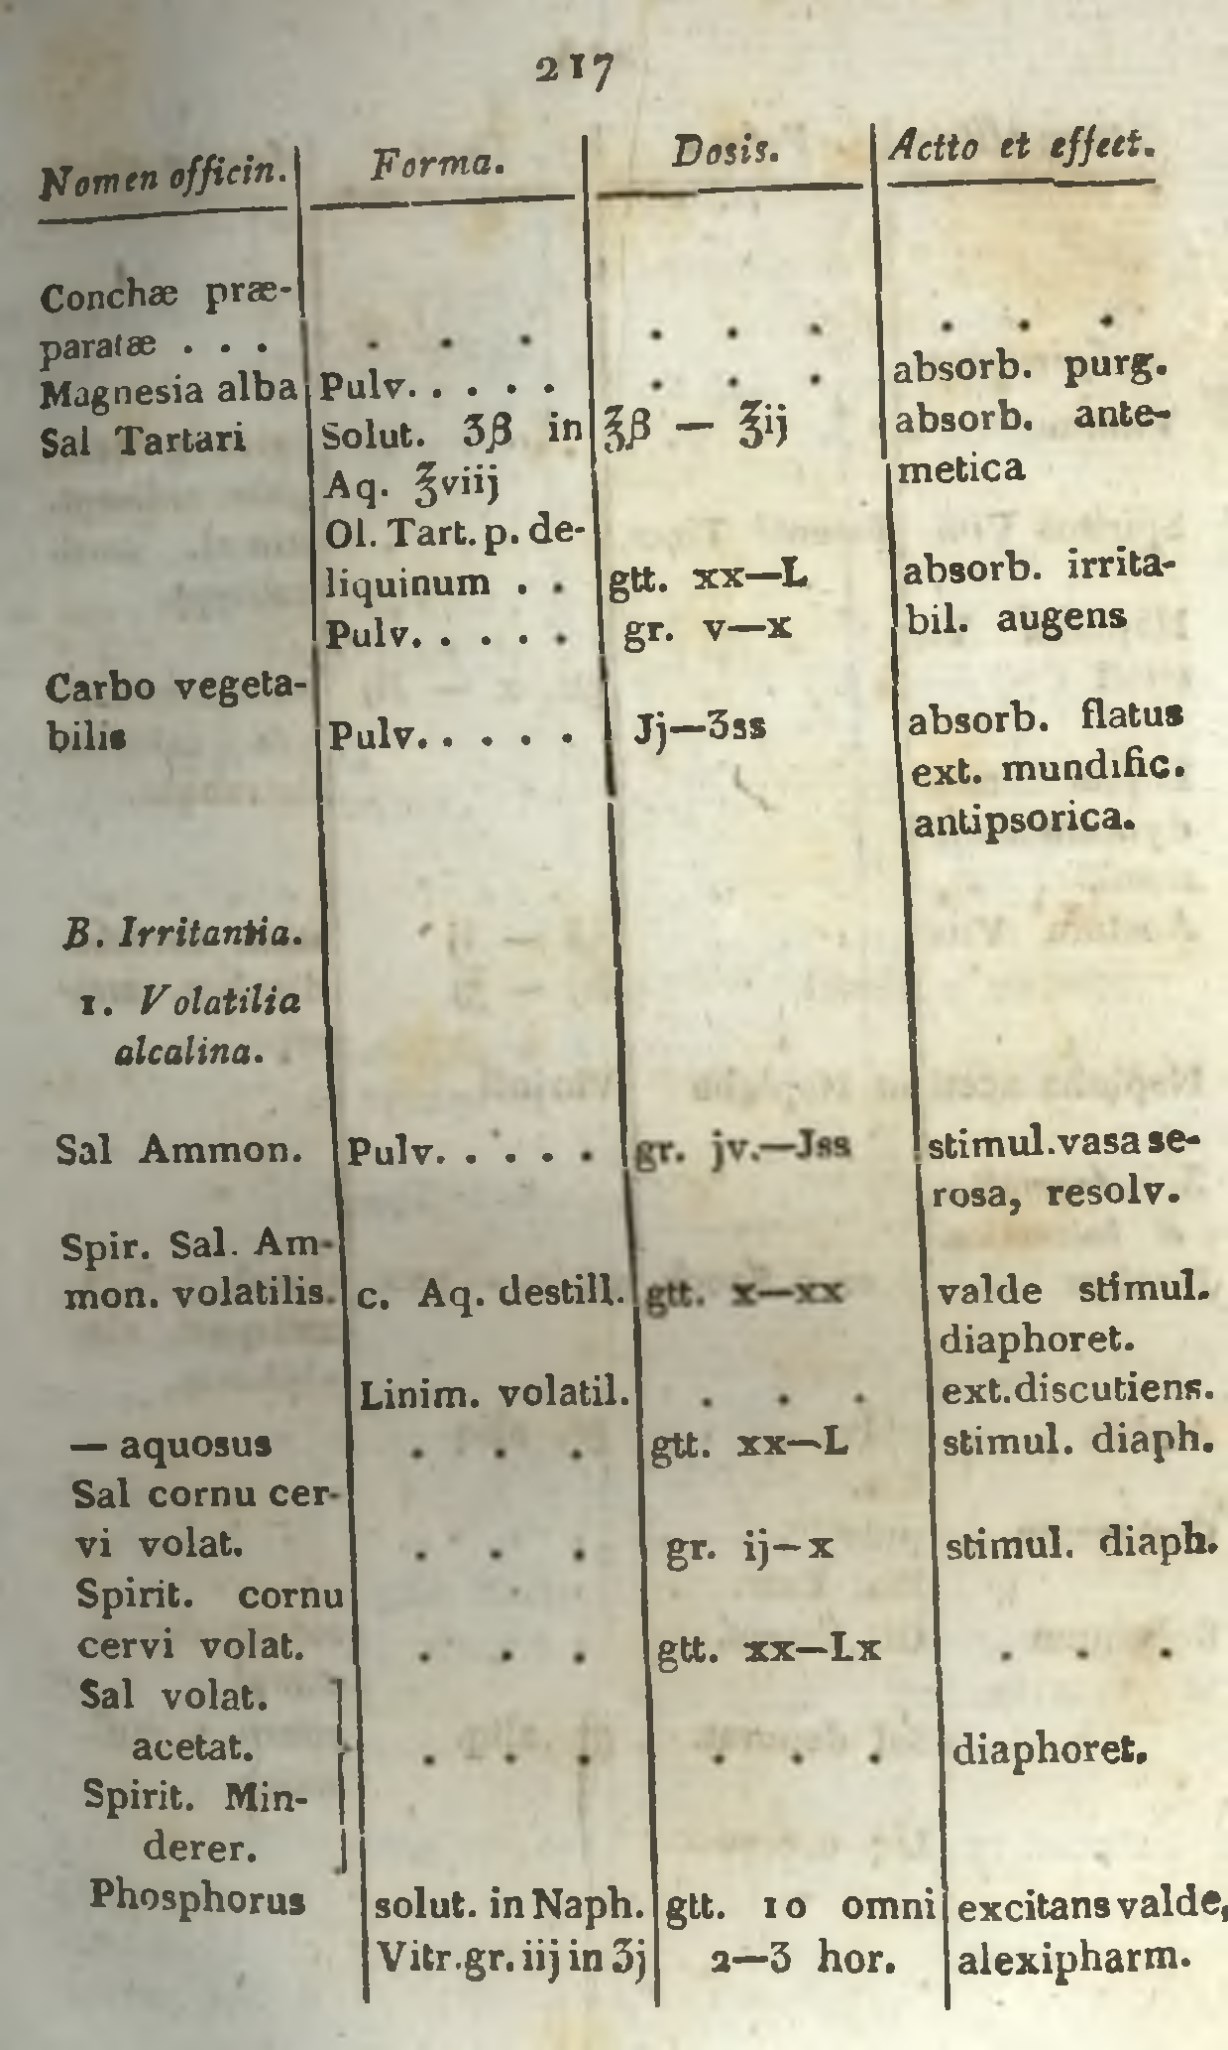 217
Nomen officin. Forma. Dosis. Actio et effect.
Conchæ præ-
paratæ . . . . . . . . . . . .
Magnesia alba Pulv. . . . . . . . absorb. purg.
Sal Tartari Solut. ʒβ in ℥β — ℥ij absorb. ante-
Aq. ℥viij metica
Ol. Tart. p. de-
liquinum . . gtt. xx—L absorb. irrita-
Pulv. . . . . gr. v—x bil. augens
Carbo vegeta-
bilis Pulv. . . . . Jj—ʒss absorb. flatus
ext. mundific.
antipsorica.
B. Irritantia.
1. Volatilia
alcalina.
Sal Ammon. Pulv. . . . . gr. jv.—Jss stimul. vasa se-
rosa, resolv.
Spir. Sal. Am-
mon. volatilis. c. Aq. destill. gtt. x—xx valde stimul.
diaphoret.
Linim. volatil. . . . ext. discutiens.
— aquosus . . . gtt. xx—L stimul. diaph.
Sal cornu cer-
vi volat. . . . gr. ij—x stimul. diaph.
Spirit. cornu
cervi volat. . . . gtt. xx—Lx . . .
Sal volat.
acetat. . . . . . . diaphoret.
Spirit. Min-
derer.
Phosphorus solut. in Naph. gtt. 10 omni excitans valde,
Vitr. gr. iij in ʒj 2—3 hor. alexipharm.